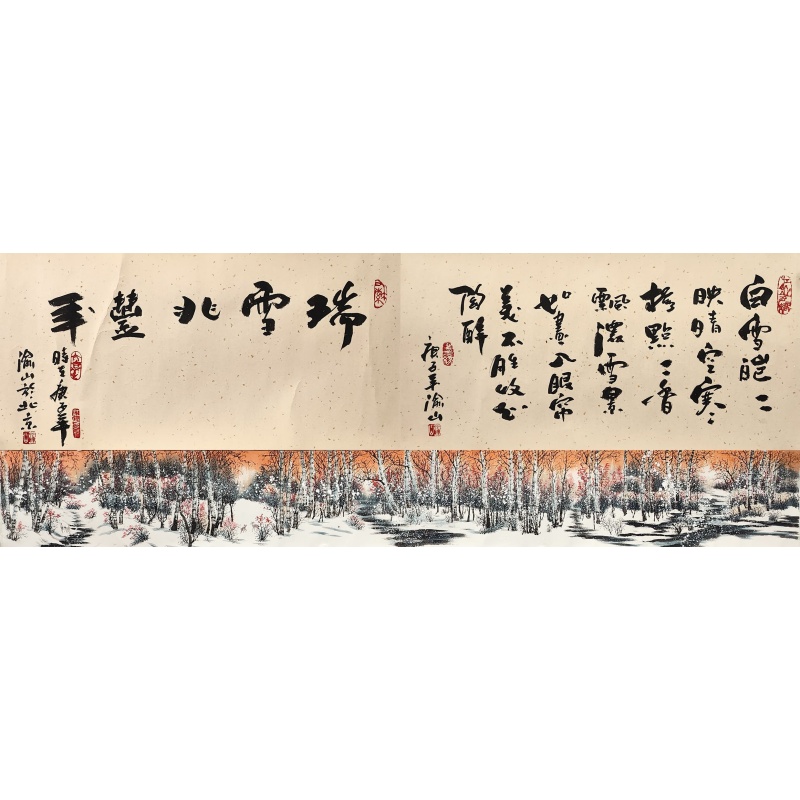 白雪皑〻
映晴空寒
梅點〻香
飄濃雪景
如畫入眼帘
美不胜收心
陶醉
庚子年渝山
瑞雪兆豐年
時在庚子年
渝山於北京